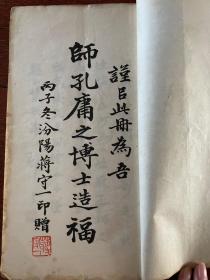 謹㠯此冊為吾
師孔庸之博士造福
丙子冬汾陽蔣守一印贈